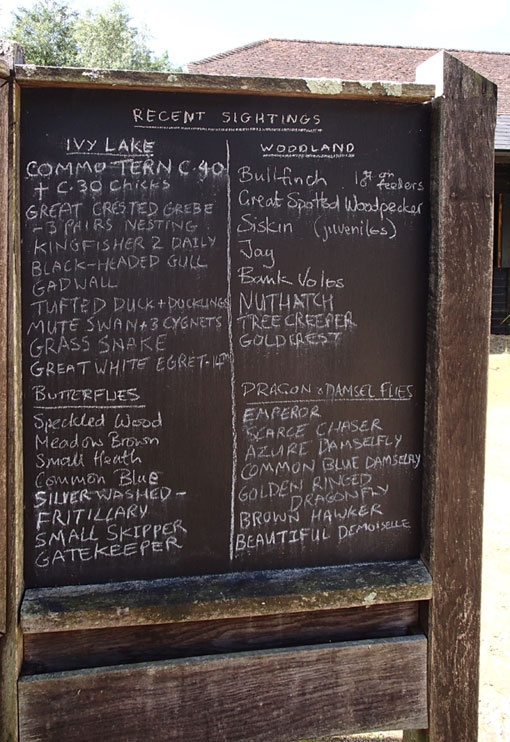 RECENT SIGHTINGS
IVY LAKE
COMMO-TERN C.40
+ C.30 chicks
GREAT CRESTED GREBE
-3 PAIRS NESTING
KINGFISHER 2 DAILY
BLACK-HEADED GULL
GADWALL
TUFTED DUCK + DUCKLINGS
MUTE SWAN + 3 CYGNETS
GRASS SNAKE
GREAT WHITE EGRET - 14TH
BUTTERFLIES
Speckled Wood
Meadow Brown
Small Heath
Common Blue
SILVER WASHED -
FRITILLARY
SMALL SKIPPER
GATEKEEPER
WOODLAND
Bullfinch on feeders
Great Spotted Woodpecker
Siskin (juveniles)
Jay
Bank Voles
NUTHATCH
TREECREEPER
GOLDCREST
DRAGON & DAMSEL FLIES
EMPEROR
SCARCE CHASER
AZURE DAMSELFLY
COMMON BLUE DAMSELFLY
GOLDEN RINGED
DRAGONFLY
BROWN HAWKER
BEAUTIFUL DEMOISELLE